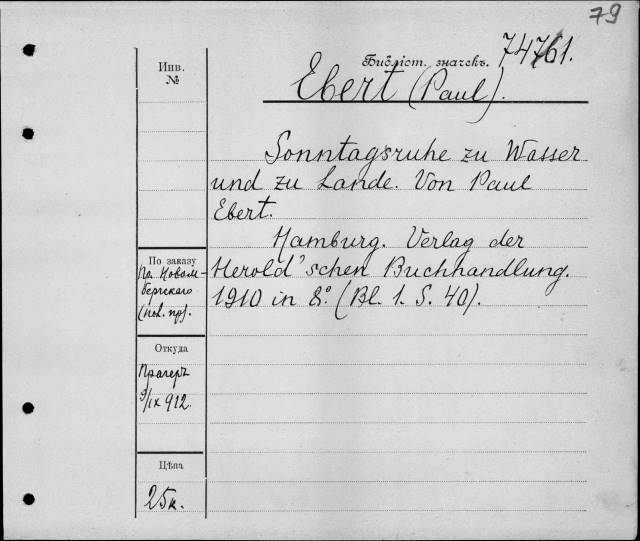 79
Инв.
№
Библіот. значекъ. 74761.
Ebert (Paul).
Sonntagsruhe zu Wasser
und zu Lande. Von Paul
Ebert.
Hamburg. Verlag der
Herold'schen Buchhandlung.
1910 in 8°. (Bl. 1. S. 40).
По заказу
Откуда
Прагеръ
9/IX 912.
Цѣна
25к.